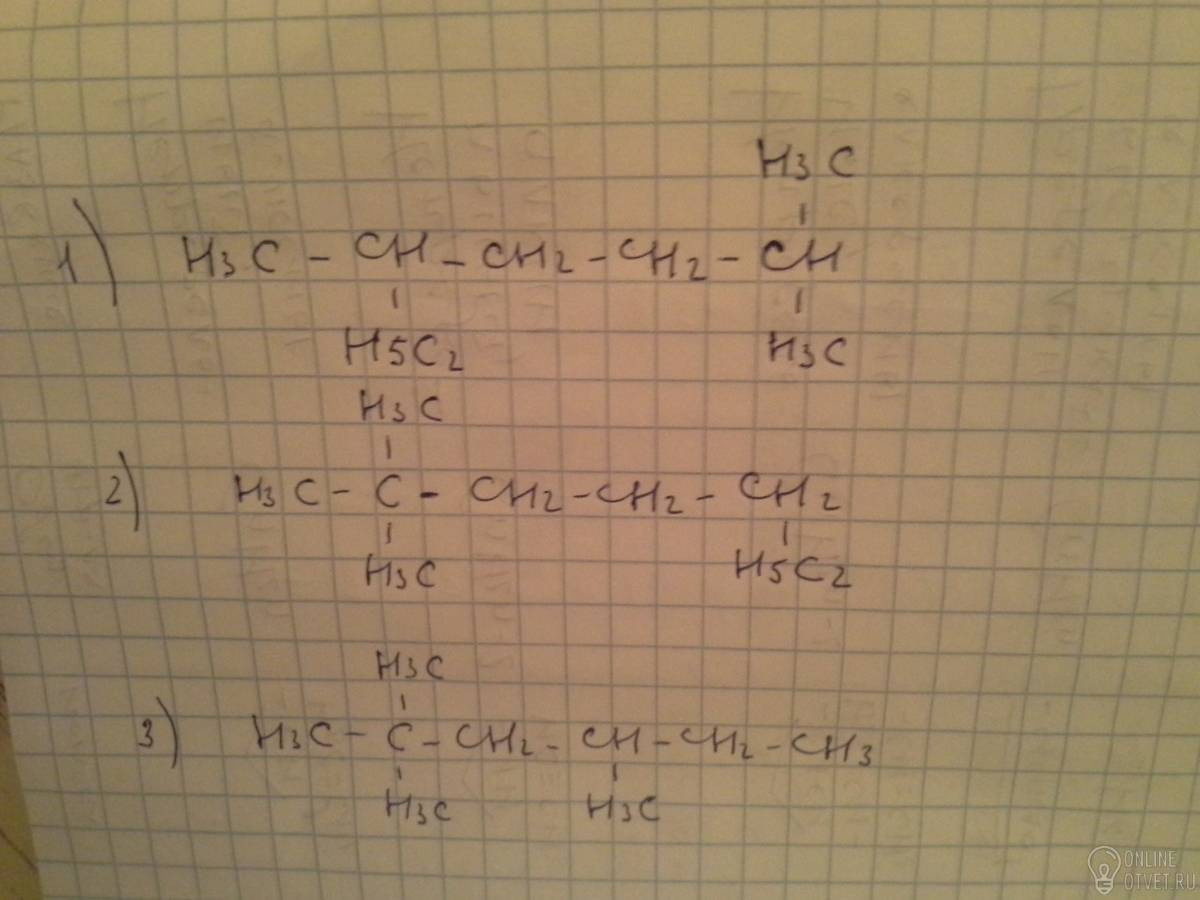 H3C
1) H3C - CH - CH2 - CH2 - CH
H5C2 H3C
H3C
2) H3C - C - CH2 - CH2 - CH2
H3C H5C2
H3C
3) H3C - C - CH2 - CH - CH2 - CH3
H3C H3C
ONLINE
OTVET.RU